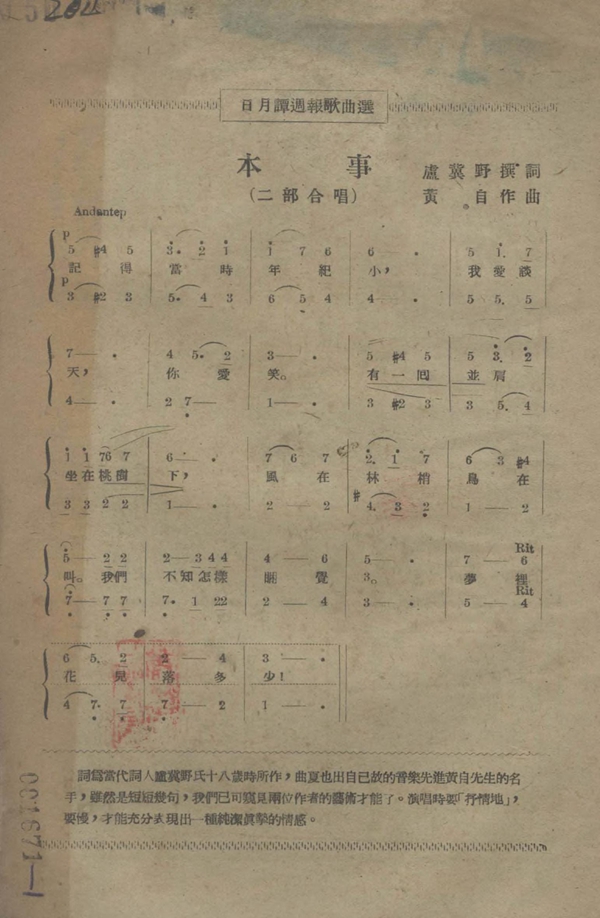 204
日月譚週報歌曲選
本事
(二部合唱)
盧冀野撰詞
黃自作曲
Andantep
p
5 #4 5 3· 2 1 1 7 6 6 — · 5 1. 7
記得當時年紀小,我愛談
p
3 #2 3 5· 4 3 6 5 4 4 — · 5 5. 5
7 — · 4 5· 2 3 — · 5 #4 5 5 3. 2
天,你愛笑。有一囘並肩
4 — · 2 7 — 1 — · 3 #2 3 3 5. 4
1 1 76 7 6 — · 7 6 7 2. 1 7 6 3 #4
坐在桃樹下,風在林梢鳥在
3 3 2 2 1 — · 2 — 2 #4. 3 2 1 — 2
5 — 2 2 2 — 3 4 4 4 — 6 5 — · 7 — 6
Rit
叫。我們不知怎樣睏覺。夢裡
Rit
7 — 7 7 7· 1 22 2 — 4 3 — · 5 — 4
6 5. 2 2 — 4 3 — ·
花兒落多少!
4 7· 7 7 — 2 1 — ·
詞爲當代詞人盧冀野氏十八歲時所作,曲夏也出自已故的音樂先進黃自先生的名
手,雖然是短短幾句,我們已可窺見兩位作者的藝術才能了。演唱時要「抒情地」,
要慢,才能充分表現出一種純潔眞摯的情感。
001671